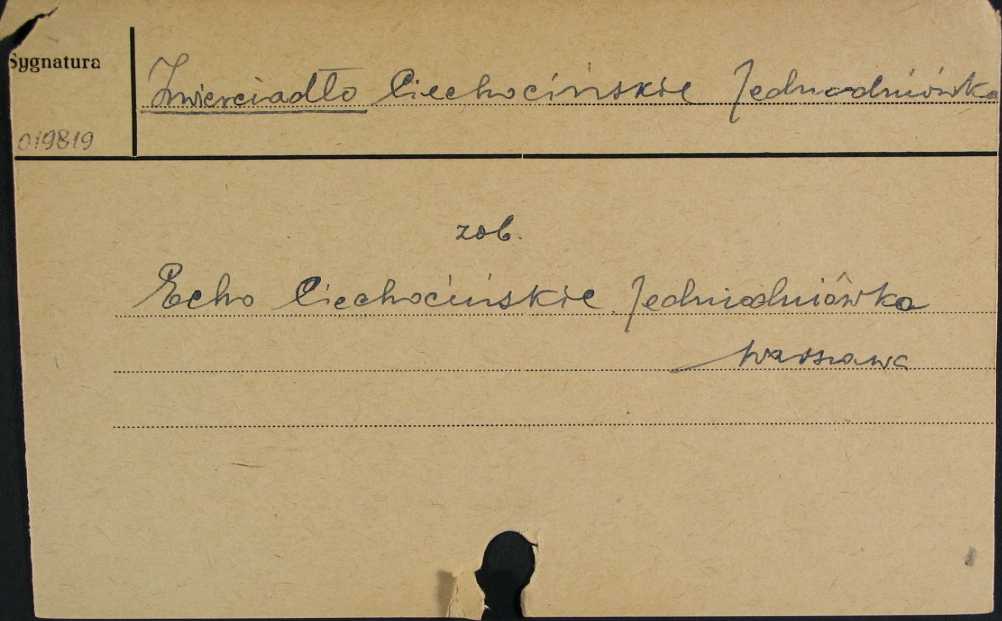 Sygnatura
Zwierciadło Ciechocińskie Jednodniówka
019819
zob.
Echo Ciechocińskie Jednodniówka
Warszawa